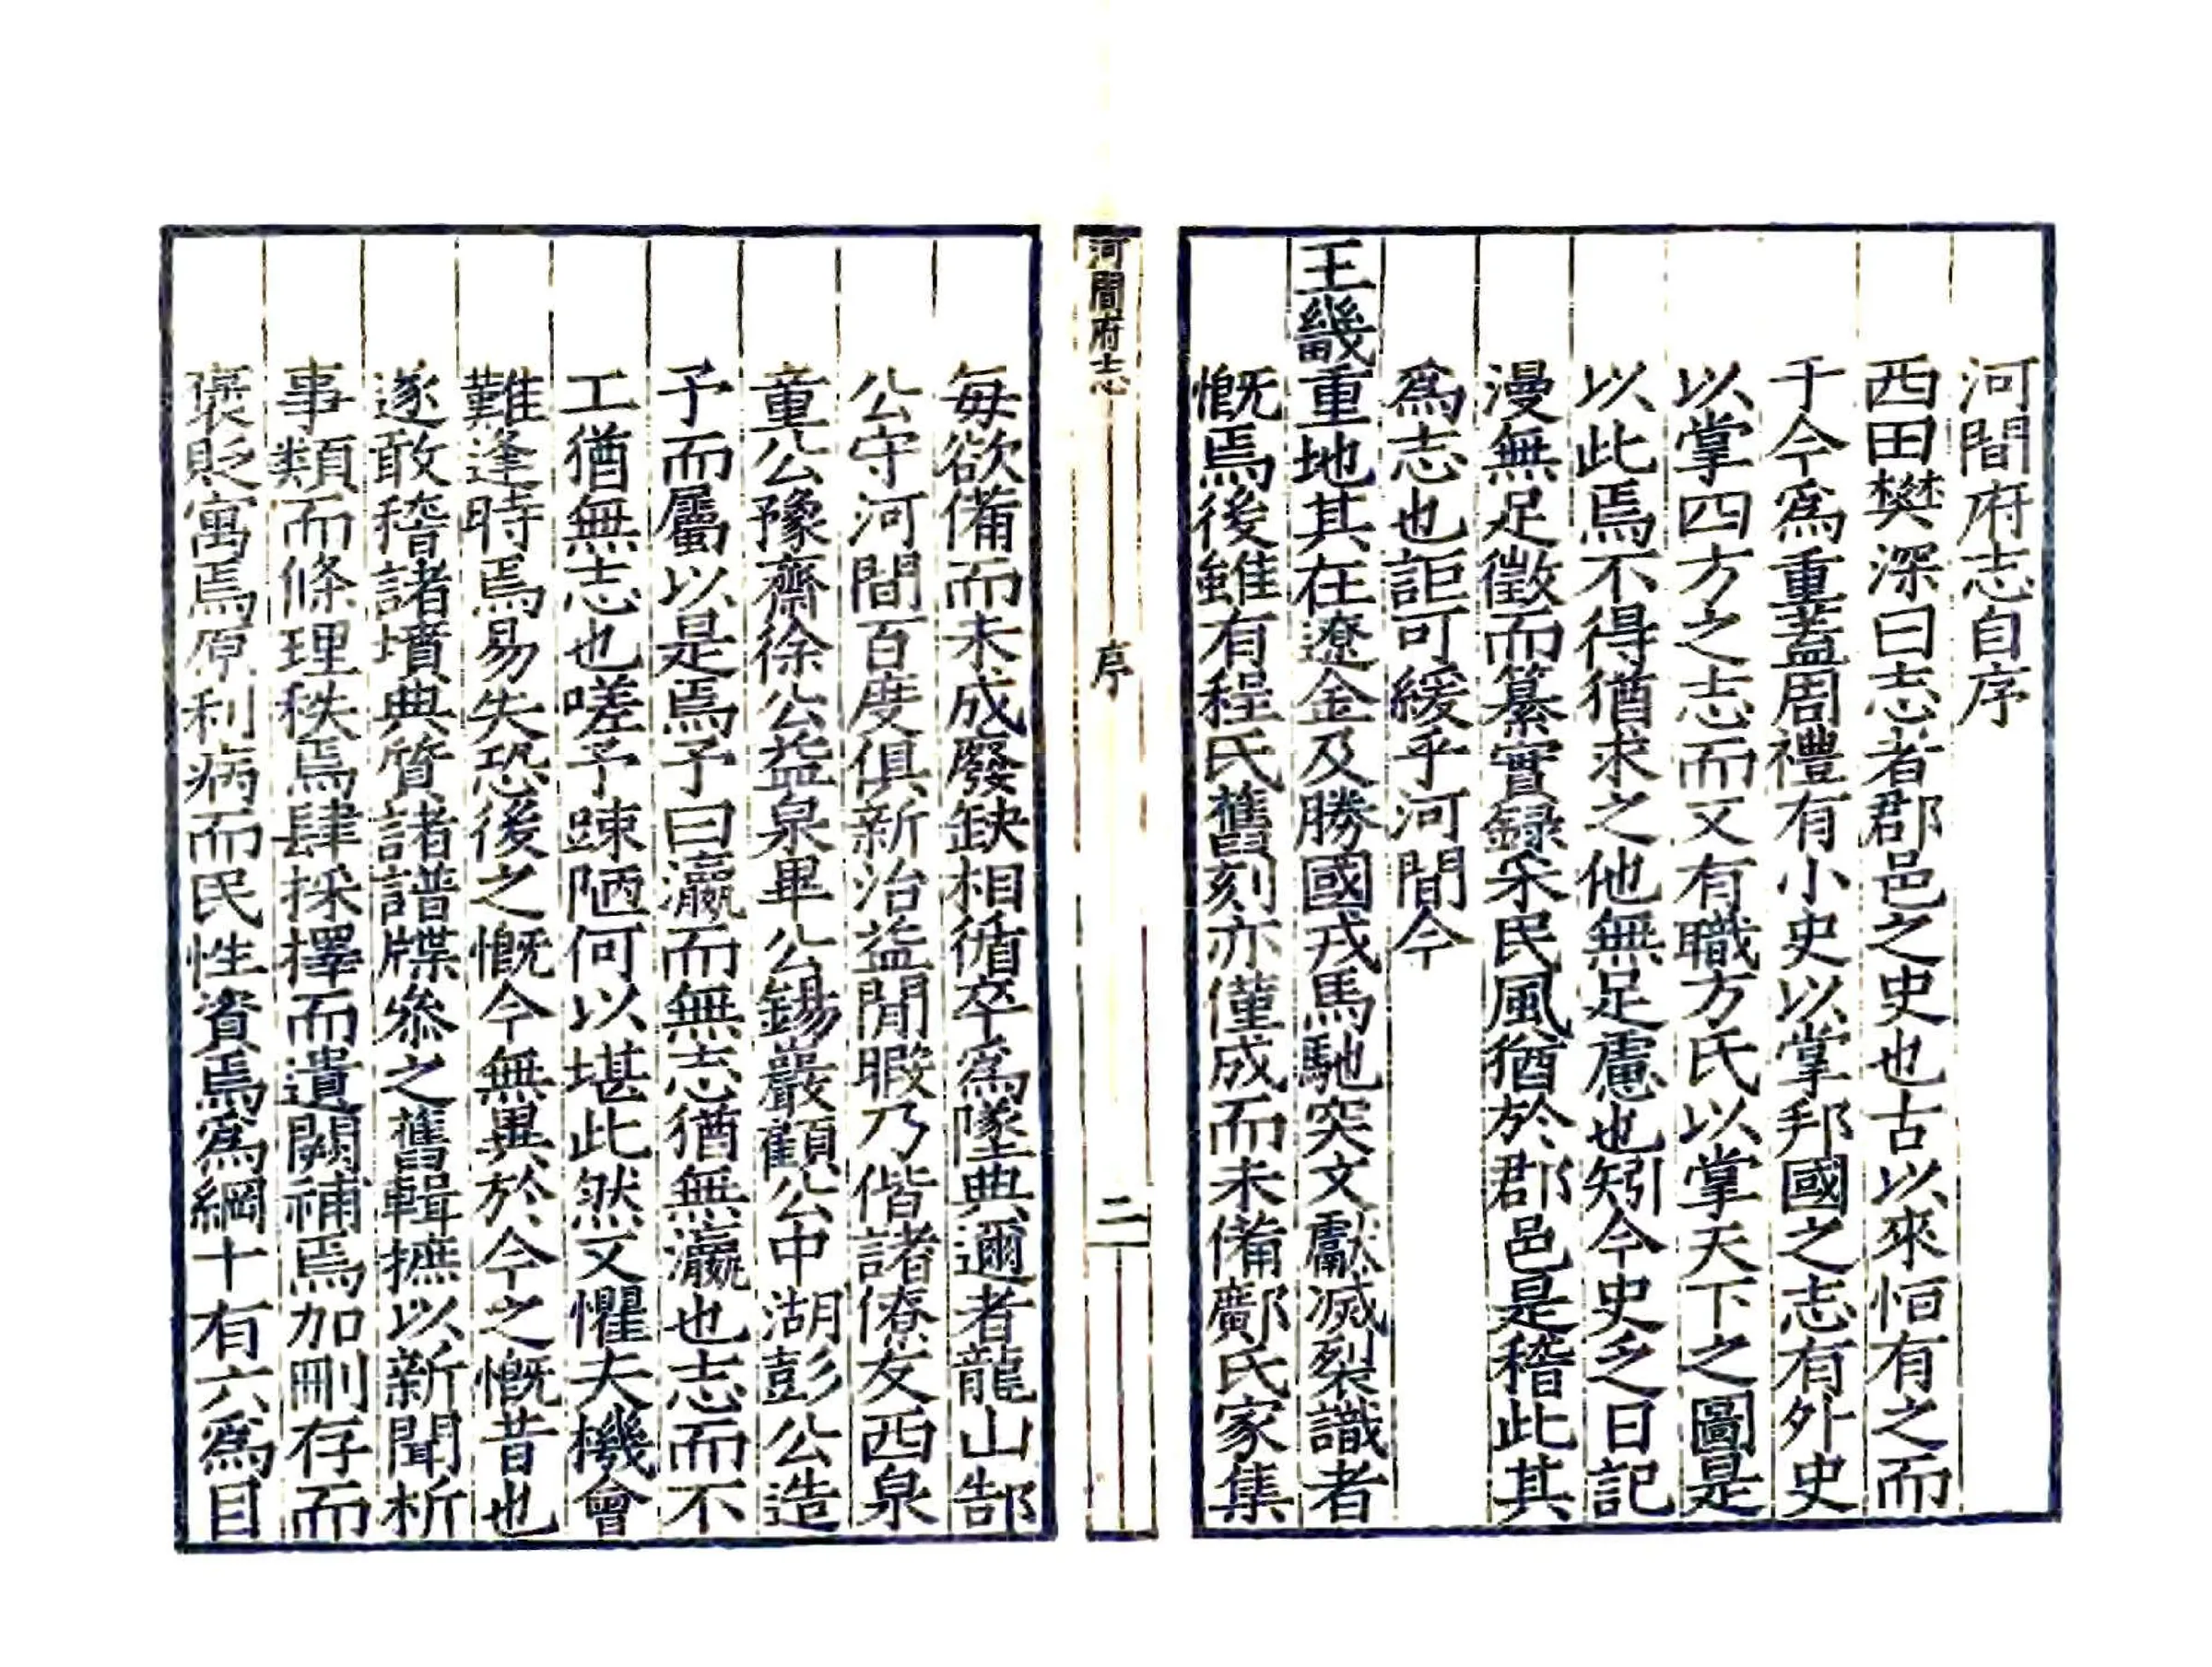 河間府志自序
西田樊深曰志者郡邑之史也古以來恒有之而
于今爲重蓋周禮有小史以掌邦國之志有外史
以掌四方之志而又有職方氏以掌天下之圖是
以此焉不得猶求之他無足慮也矧今史乏日記
漫無足徵而纂實録采民風猶於郡邑是稽此其
爲志也詎可緩乎河間今
王畿重地其在遼金及勝國戎馬馳突文獻滅裂識者
慨焉後雖有程氏舊刻亦僅成而未備鄺氏家集
河間府志 序 二
每欲備而未成廢缺相循卒爲墜典邇者龍山郜
公守河間百度俱新治益閒暇乃偕諸僚友西泉
童公豫齋徐公益泉畢公錫巖顧公中湖彭公造
予而屬以是焉予曰瀛而無志猶無瀛也志而不
工猶無志也嗟予踈陋何以堪此然又懼夫機會
難逢時焉易失恐後之慨今無異於今之慨昔也
遂敢稽諸墳典質諸譜牒叅之舊輯摭以新聞析
事類而條理秩焉肆採擇而遺闕補焉加刪存而
褒貶寓焉原利病而民性資焉爲綱十有六爲目